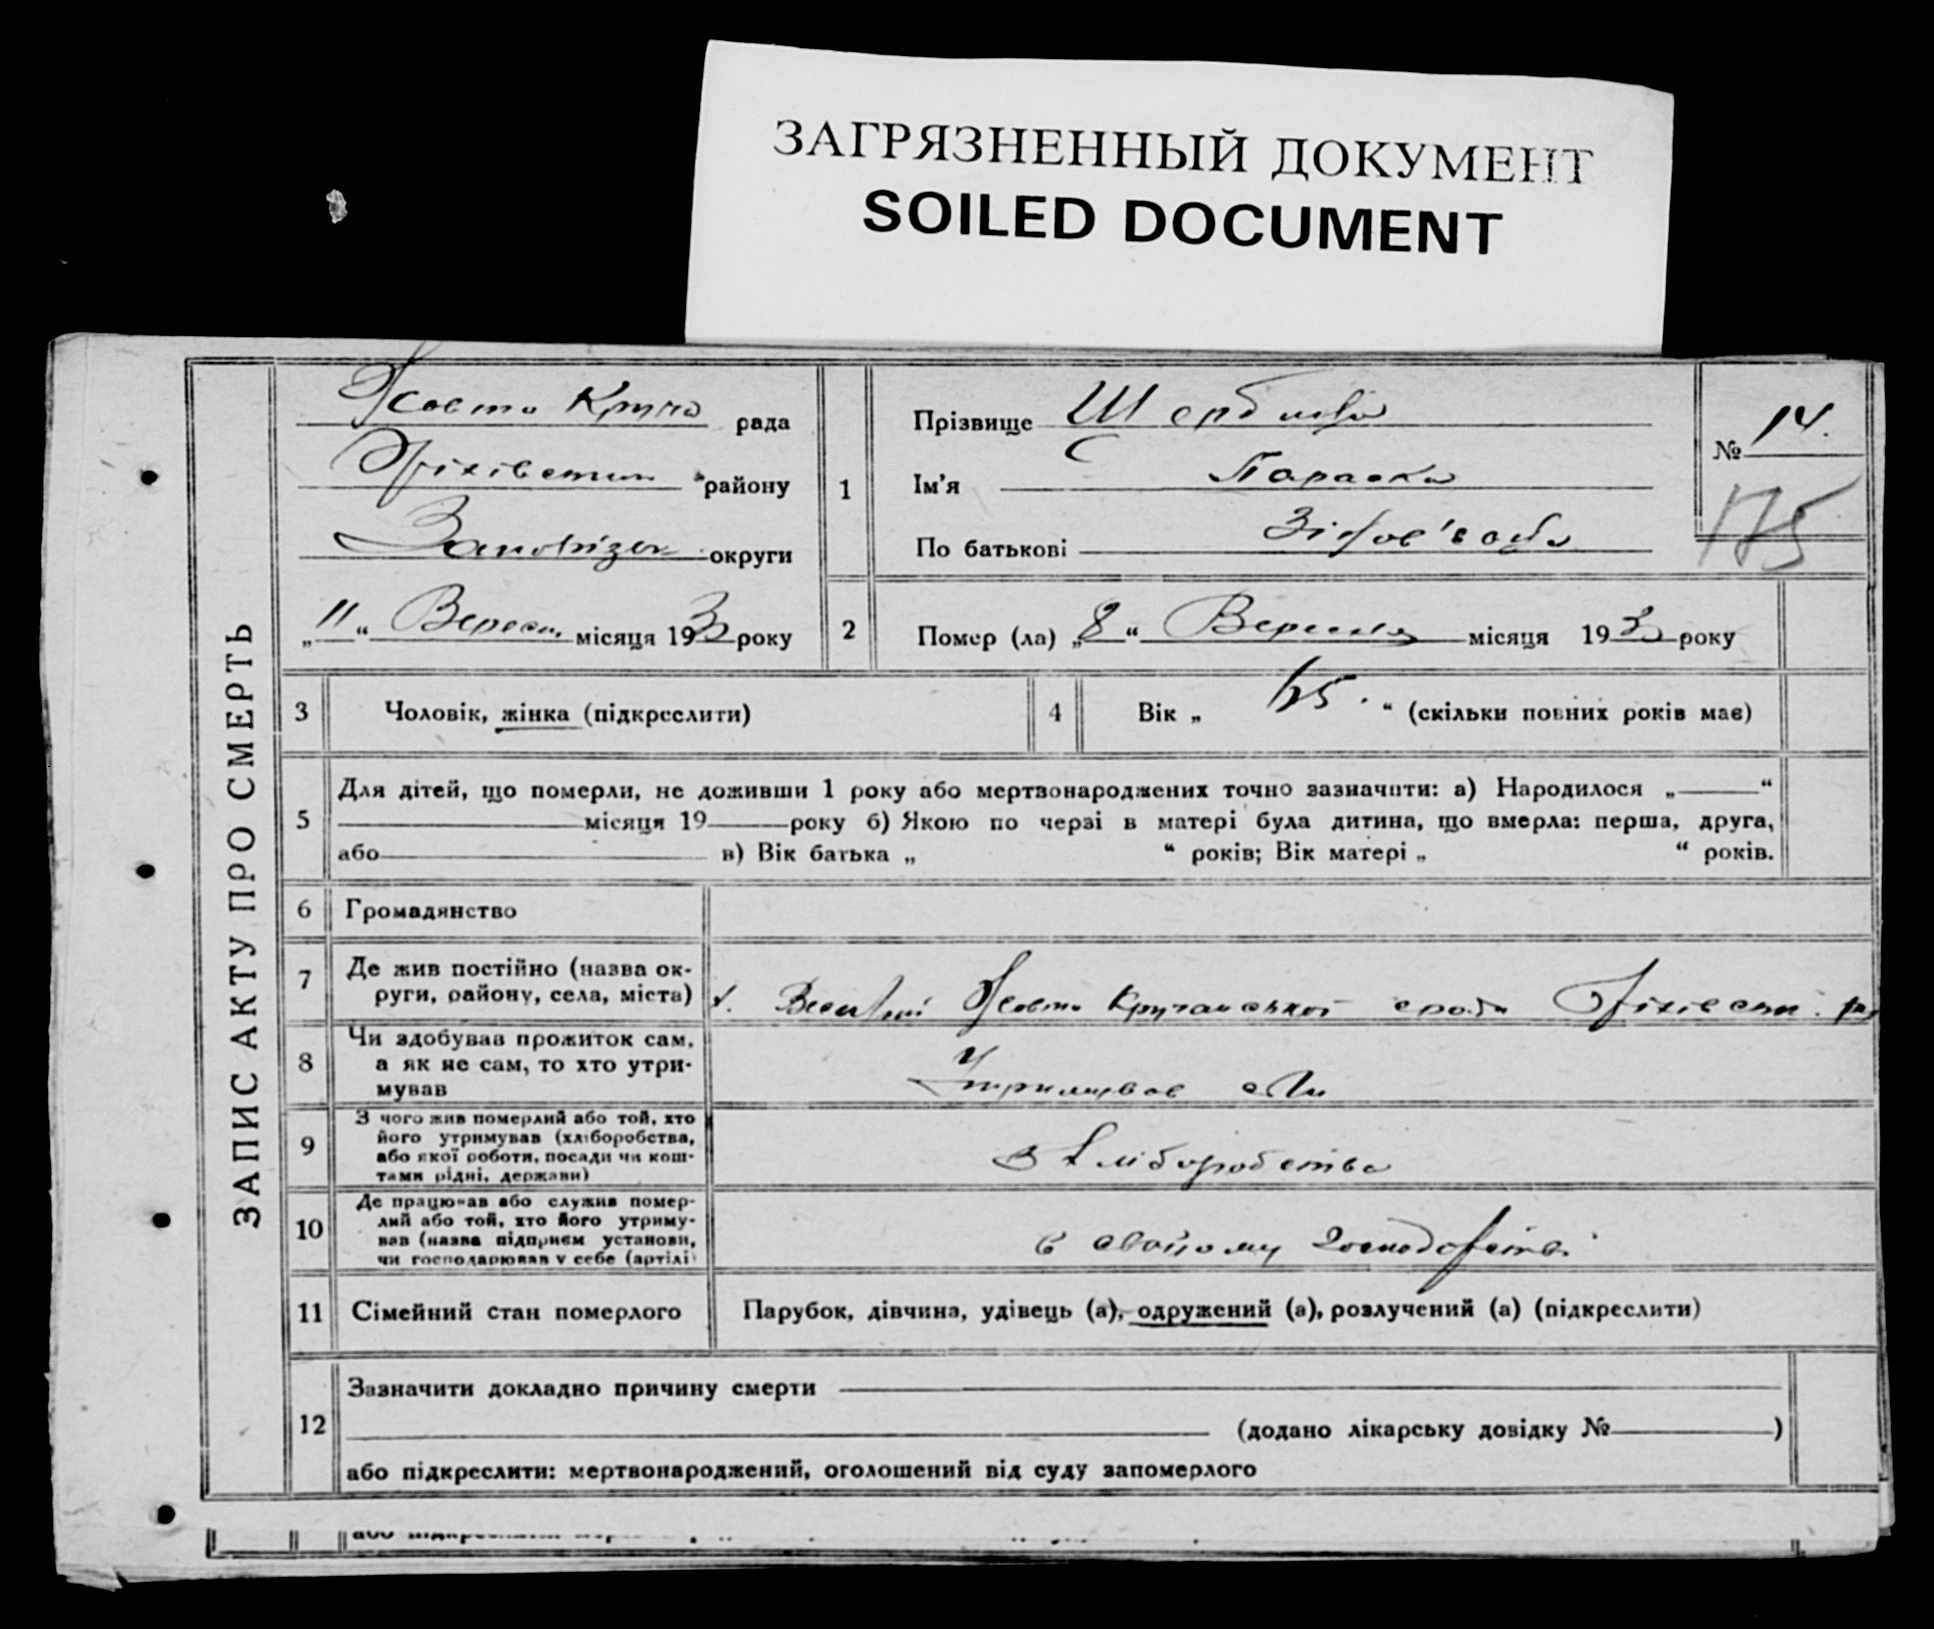 ЗАГРЯЗНЕННЫЙ ДОКУМЕНТ
SOILED DOCUMENT
ЗАПИС АКТУ ПРО СМЕРТЬ
Жовто Круча рада
району
округи
„11“ Вересн. місяця 1930 року
1
Прізвище
Ім'я Параска
По батькові
№ 14.
175
2
Помер (ла) „8“ Вересня місяця 1930 року
3
Чоловік, жінка (підкреслити)
4
Вік „ “ (скільки повних років має)
5
Для дітей, що померли, не доживши 1 року або мертвонароджених точно зазначити: а) Народилося „ “
місяця 19 року б) Якою по черзі в матері була дитина, що вмерла: перша, друга,
або в) Вік батька „ “ років; Вік матері „ “ років.
6
Громадянство
7
Де жив постійно (назва ок-
руги, району, села, міста)
Жовто Кручанської
8
Чи здобував прожиток сам,
а як не сам, то хто утри-
мував
Утримував
9
З чого жив померлий або той, хто
його утримував (хліборобства,
або якої роботи, посади чи кош-
тами рідні, держави)
З Хліборобства
10
Де працював або служив помер-
лий або той, хто його утриму-
вав (назва підприєм установи,
чи господарював у себе (артілі)
в свойому господарстві
11
Сімейний стан померлого
Парубок, дівчина, удівець (а), одружений (а), розлучений (а) (підкреслити)
12
Зазначити докладно причину смерти
(додано лікарську довідку № )
або підкреслити: мертвонароджений, оголошений від суду запомерлого